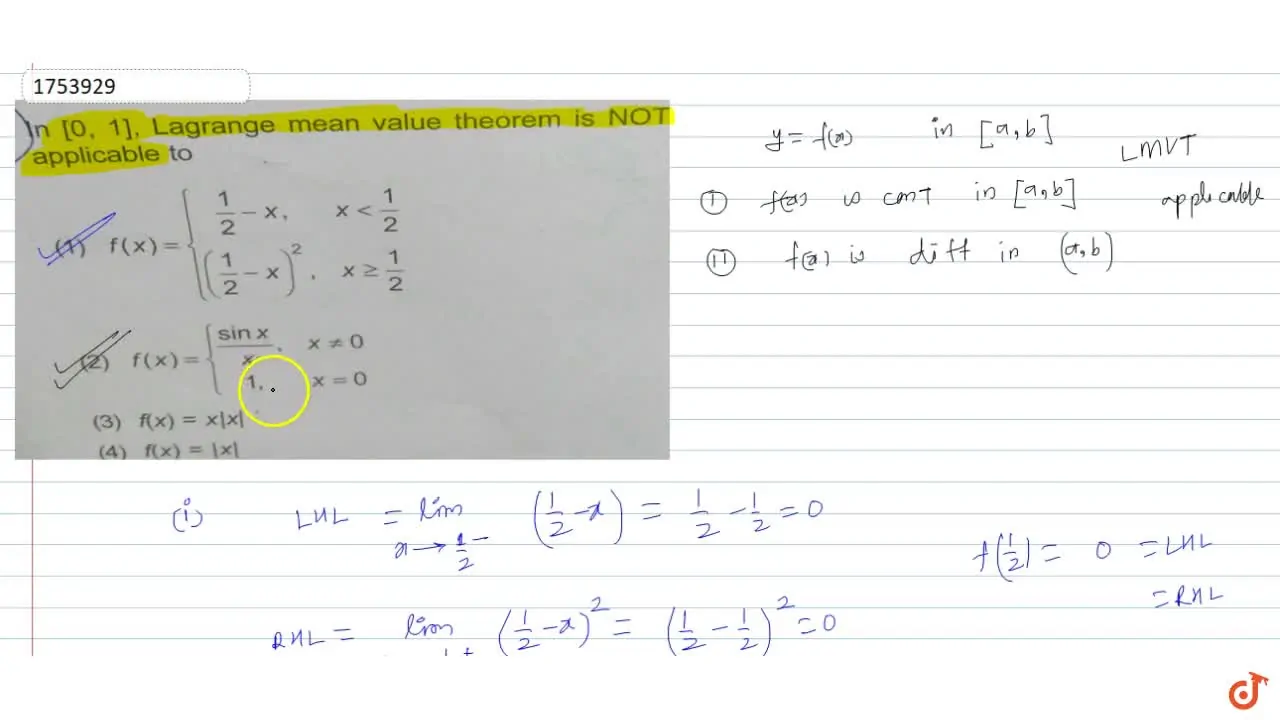 1753929
In [0, 1], Lagrange mean value theorem is NOT
applicable to
(1) f(x) = { 1/2 − x, x < 1/2
(1/2 − x)², x ≥ 1/2
(2) f(x) = { sin x / x, x ≠ 0
1, x = 0
(3) f(x) = x|x|
(4) f(x) = |x|
y = f(x) in [a,b]
LMVT
applicable
(I) f(x) is cont in [a,b]
(II) f(x) is diff in (a,b)
(i) LHL = lim x → 1/2− (1/2 − x) = 1/2 − 1/2 = 0
f(1/2) = 0 = LHL
= RHL
RHL = lim (1/2 − x)² = (1/2 − 1/2)² = 0